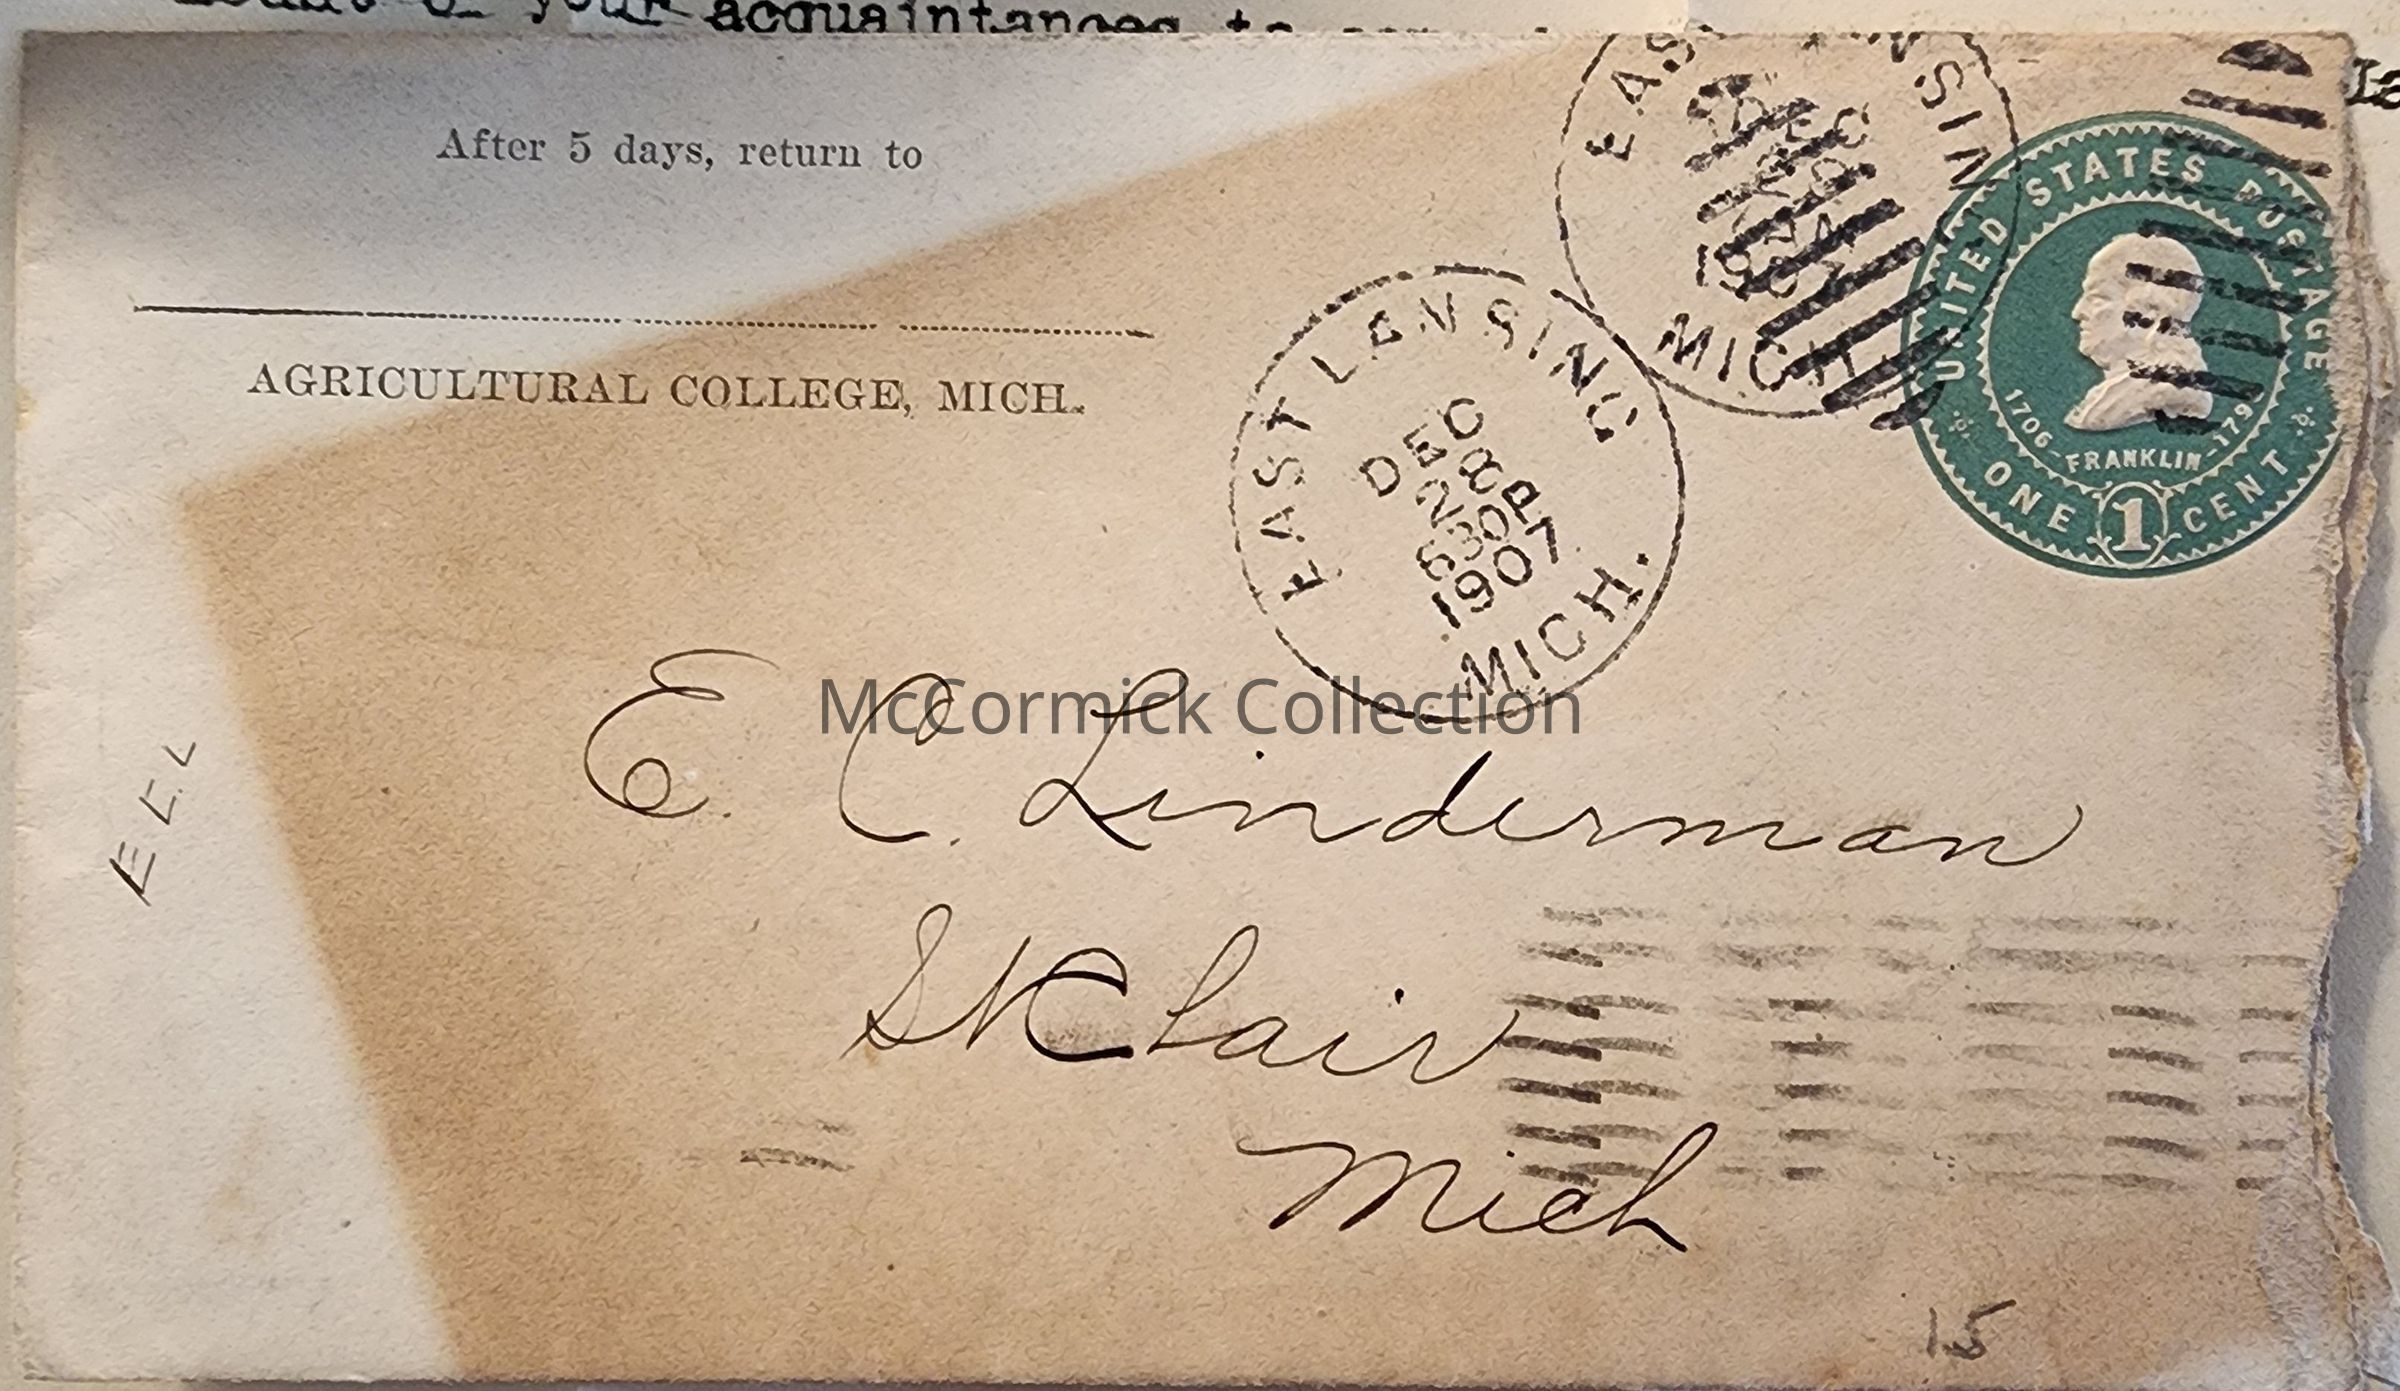 your acquaintances to
After 5 days, return to
AGRICULTURAL COLLEGE, MICH.
EAST LANSING
DEC
1907
MICH.
UNITED STATES POSTAGE
1706 - FRANKLIN - 1790
ONE 1 CENT
EAST LANSING
DEC
2 8
630 P
1907
MICH.
McCormick Collection
E. C. Linderman
St Clair
Mich
15